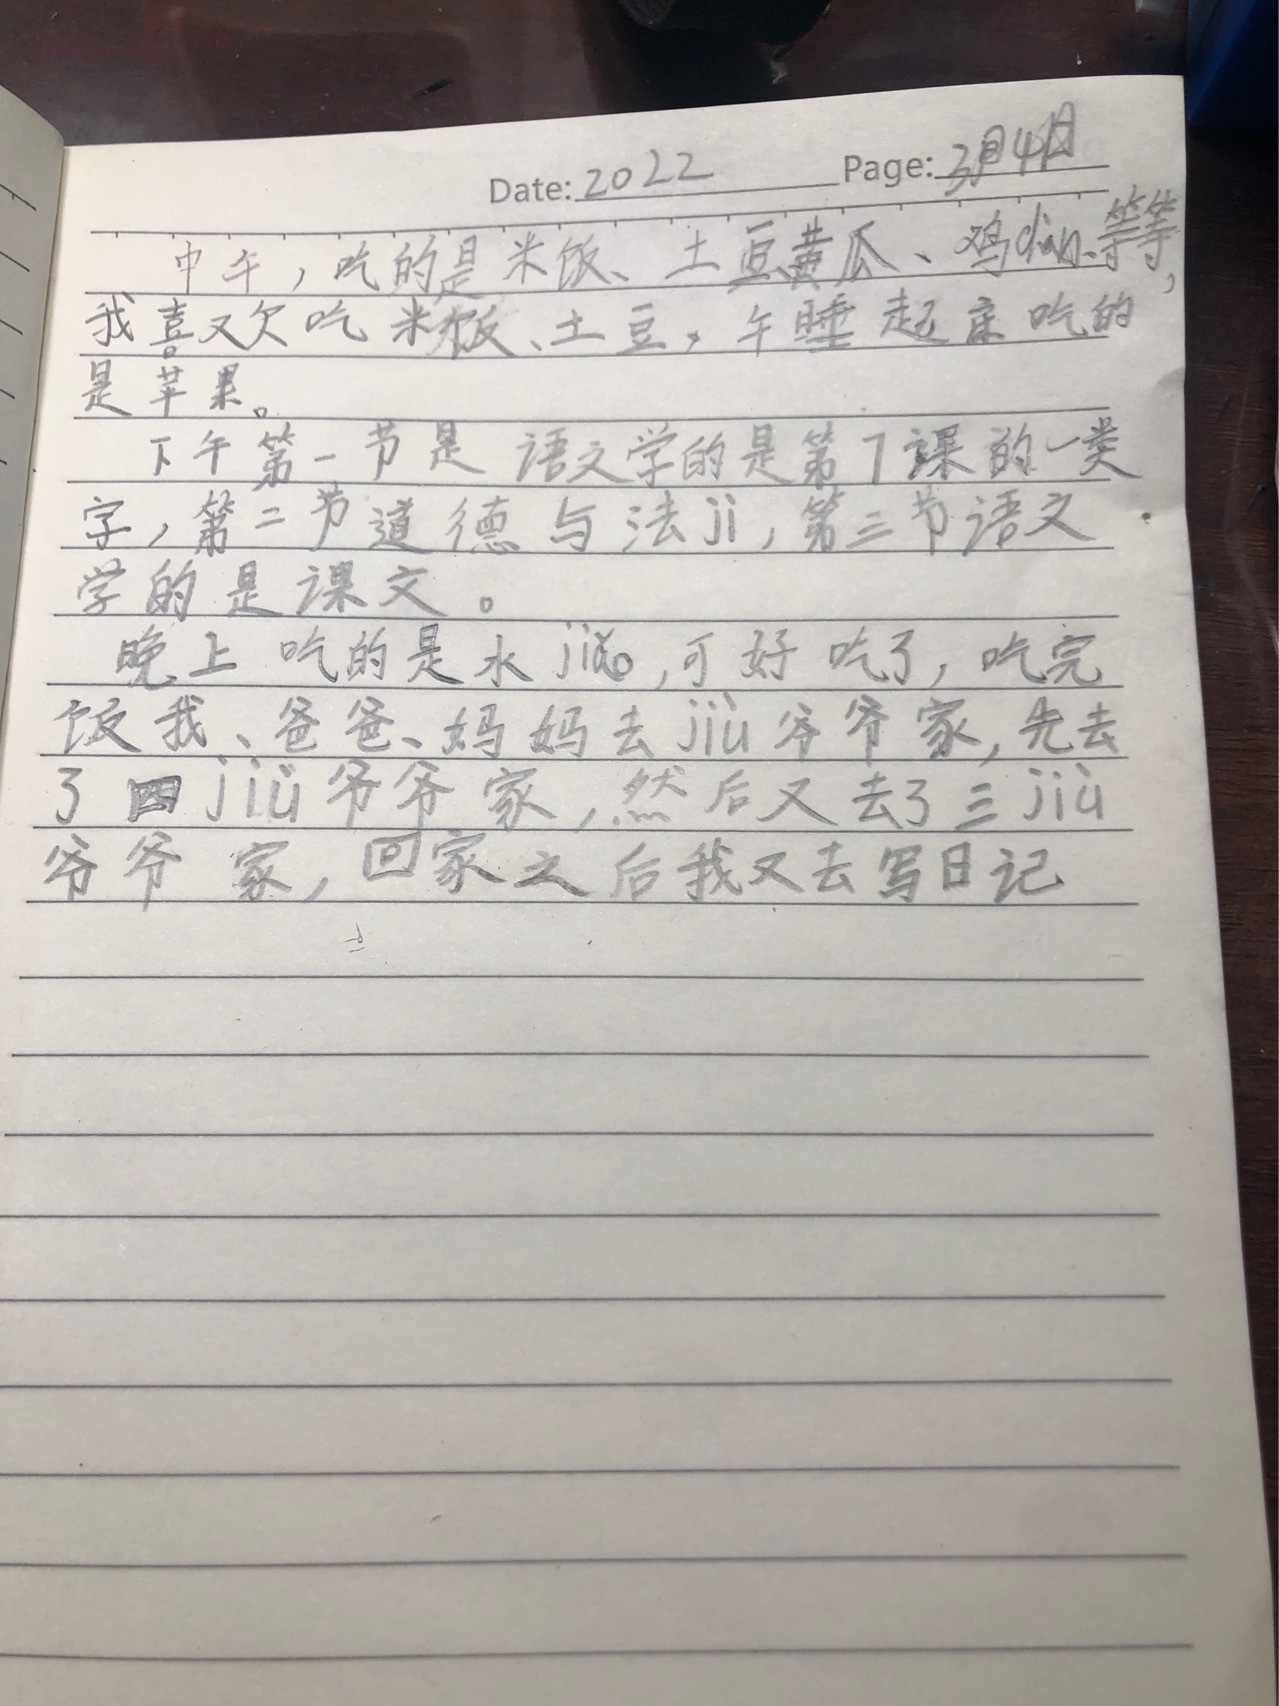 Date: 2022 Page: 3月4日
中午，吃的是米饭、土豆、黄瓜、鸡dan、等等，
我喜欢吃米饭、土豆，午睡起床吃的
是苹果。
下午第一节是语文学的是第7课的一类
字，第二节道德与法ji，第三节语文
学的是课文。
晚上吃的是水jiǎo，可好吃了，吃完
饭我、爸爸、妈妈去jiù爷爷家，先去
了四jiù爷爷家，然后又去了三jiù
爷爷家，回家之后我又去写日记